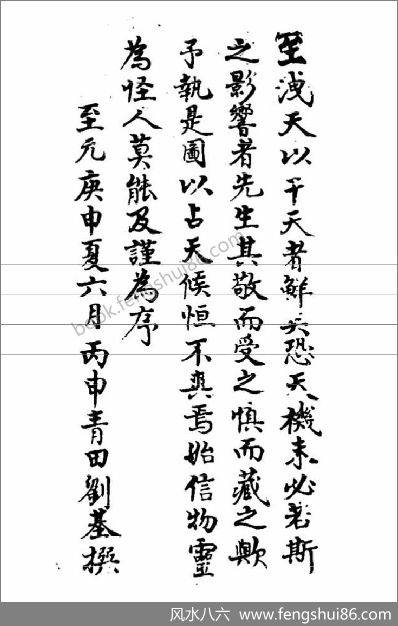 至洩天以干天者鮮矣恐天機未必若斯
之影響者先生其敬而受之慎而藏之歟
予執是圖以占天候恒不爽焉始信物靈
為怪人莫能及謹為序
至元庚申夏六月丙申青田劉基撰
book.fengshui86.com
风水八六 www.fengshui86.com